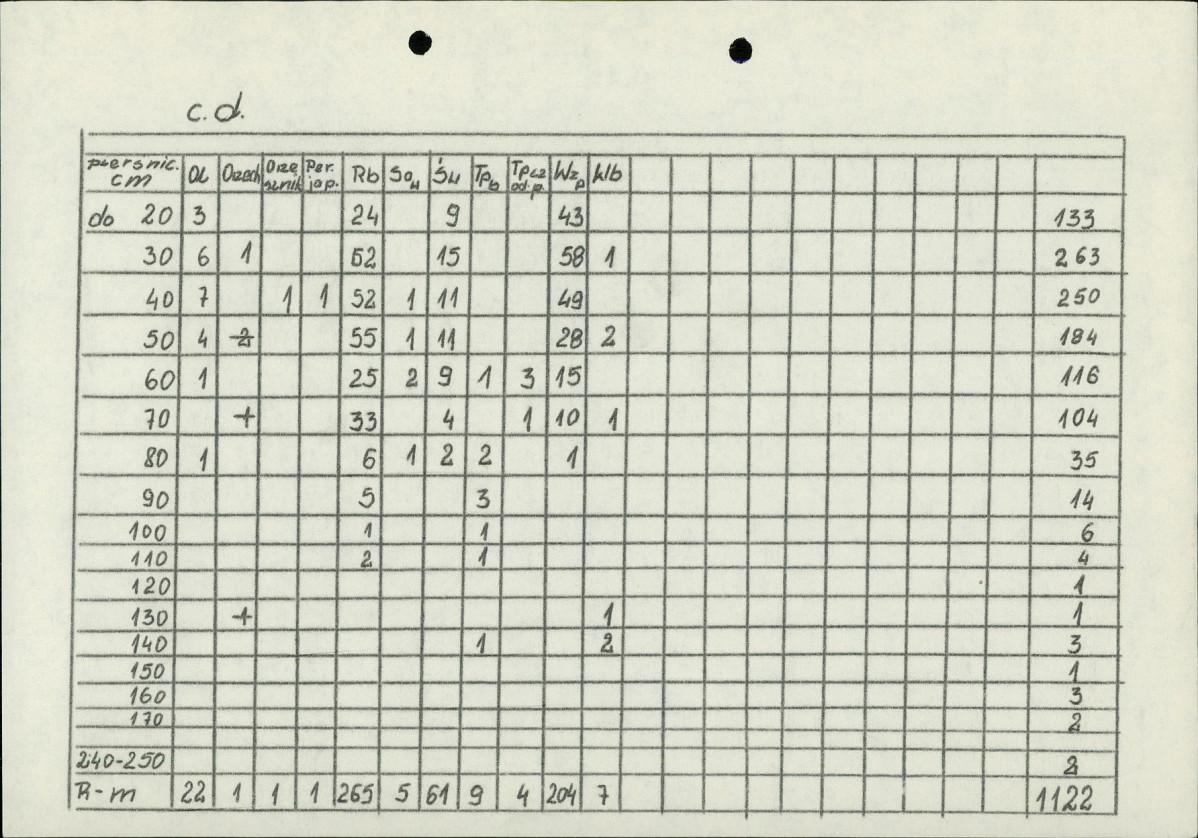 c.d.
pierśnic. cm Ol Orzech Orze sznik Per. jap. Rb So H Św Tp b Tp cz od.p. Wz p Wb
do 20 3 24 9 43 133
30 6 1 62 15 58 1 263
40 7 1 1 52 1 11 49 250
50 4 2 55 1 11 28 2 184
60 1 25 2 9 1 3 15 116
70 1 33 4 1 10 1 104
80 1 6 1 2 2 1 35
90 5 3 14
100 1 1 6
110 2 1 4
120 1
130 1 1 1
140 1 2 3
150 1
160 3
170 2
240-250 2
R-m 22 1 1 1 265 5 61 9 4 204 7 1122